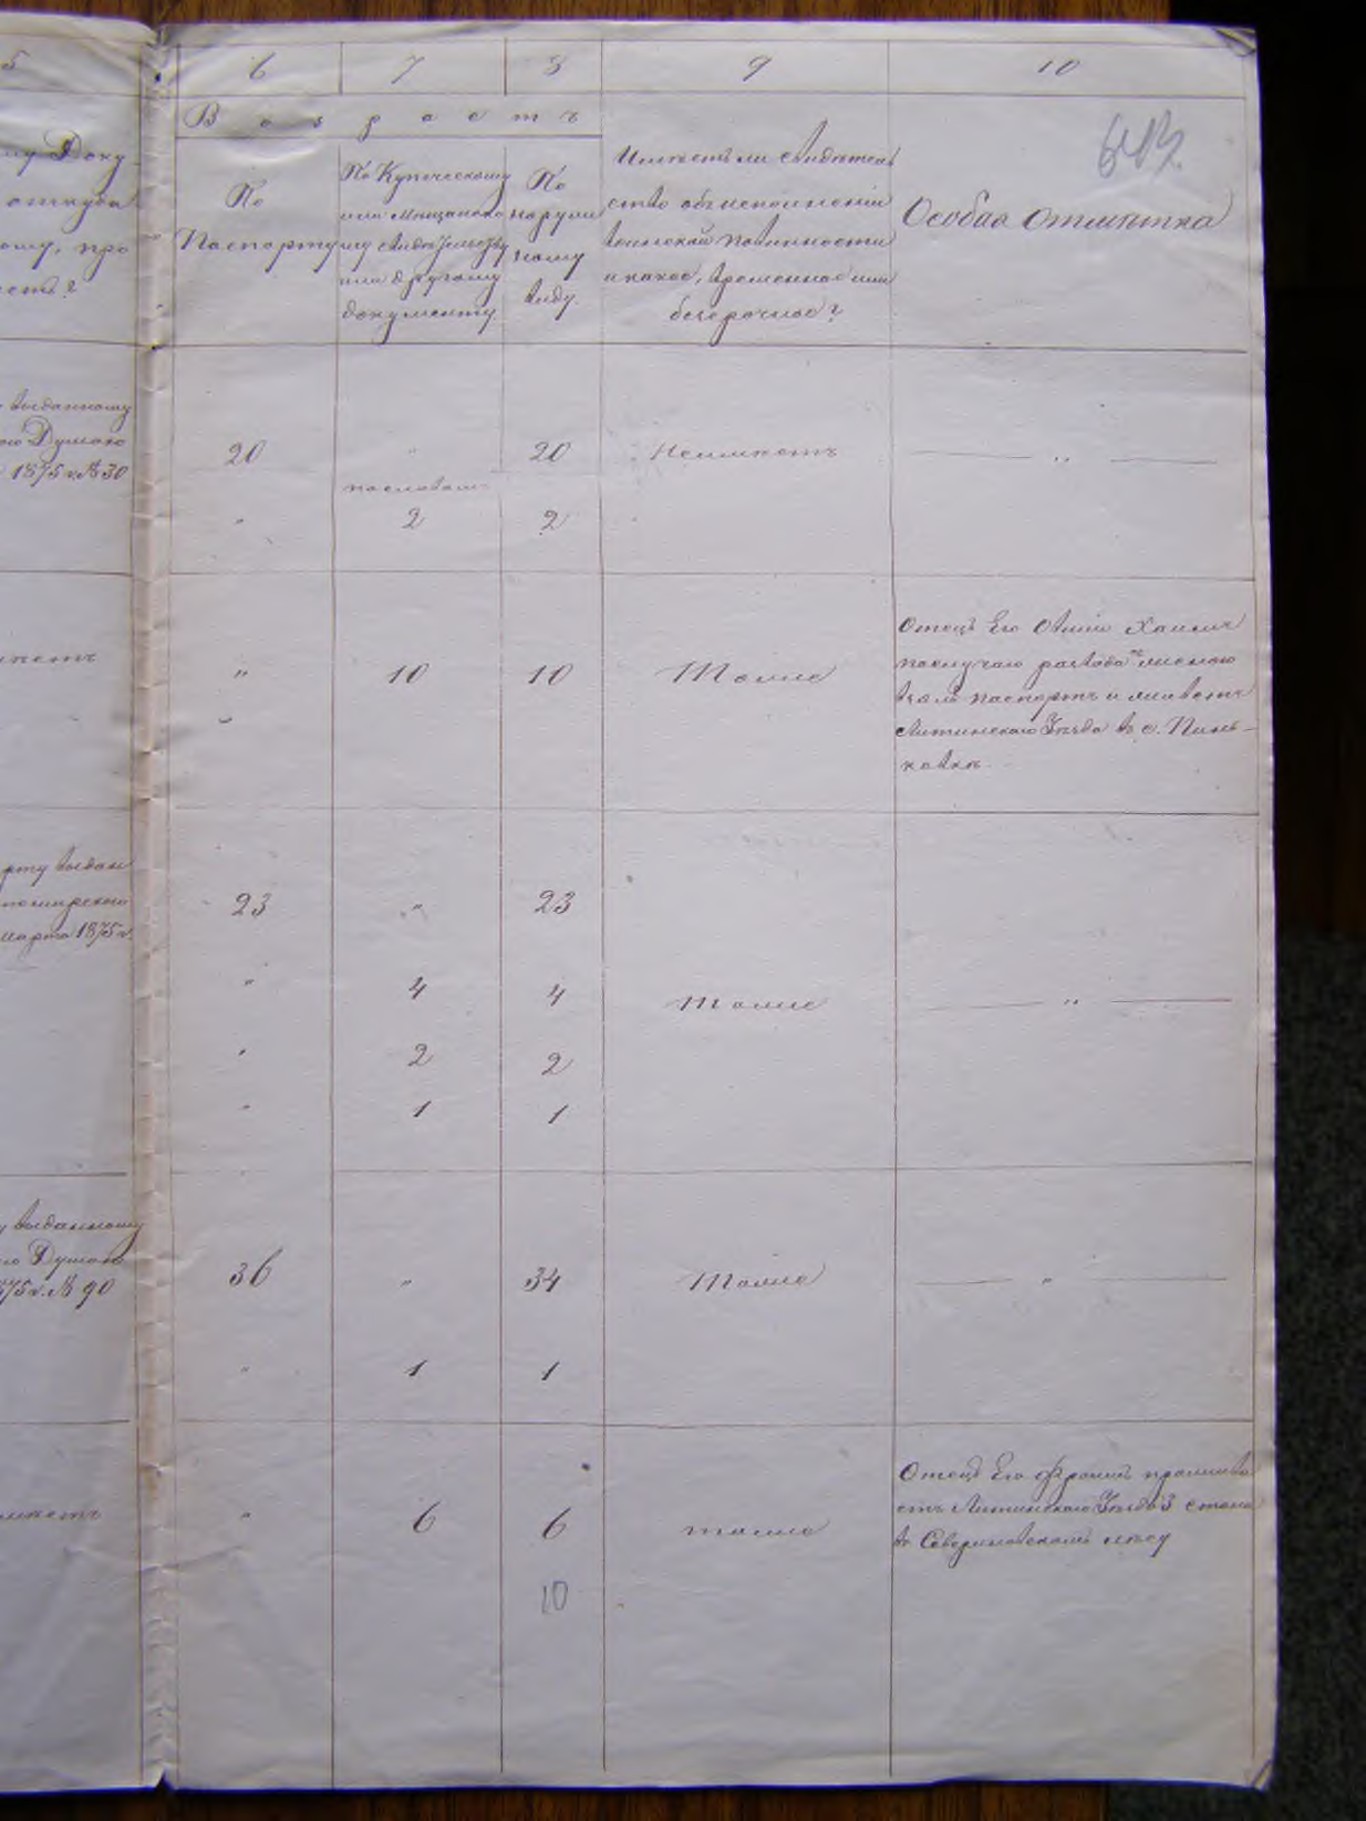 5 6 7 8 9 10
Возрастъ
му Доку
откуда
ому, про
етъ?
По
Паспорту
По Купеческому
или Мѣщанско
му Свидѣтельству
или другому
документу
По
наруж
ному
виду.
Имѣетъ ли Свидѣтель
ство объ исполненіи
воинской повинности
и какое, временное или
безсрочное?
Особая отмѣтка
выданному
Думою
1875 г. № 30
20 " 20 Неимѣетъ — " —
по словамъ
" 2 2
имѣетъ
" 10 10 Тоже
Отецъ Его
по случаю
взялъ паспортъ и живетъ
Литинскаго Уѣзда въ с. Пинь-
ковкѣ
рту выдан
марта 1875 г.
23 " 23
" 4 4 Тоже — " —
" 2 2
" 1 1
у выданному
Думою
75 г. № 90
36 " 34 Тоже — " —
" 1 1
имѣетъ
" 6 6 тоже
Отецъ Его Фроимъ прожива
етъ Литинскаго Уѣзда 3 стана
въ Севериновскомъ лѣсу
10